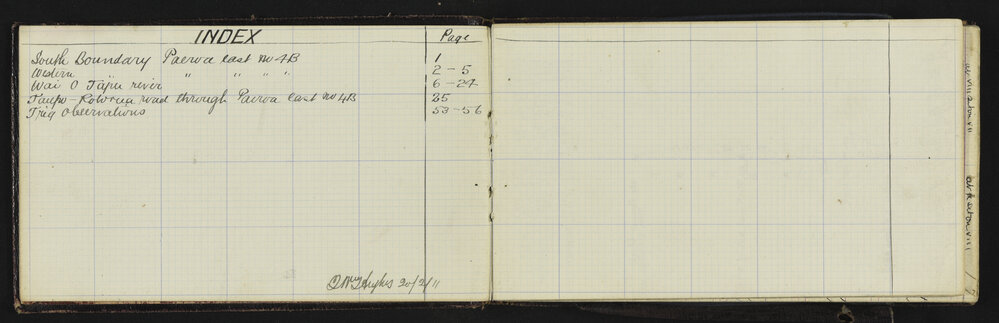 INDEX Page
South Boundary Paeroa East No 4B 1
Western " " " " 2-5
Wai O Tapu river 6-24
Taupo-Rotorua road through Paeroa East No 4B 25
Trig Observations 53-56
Hughes 20/2/11